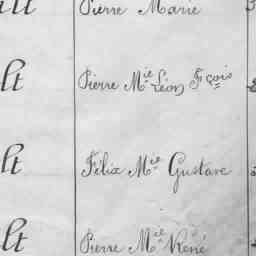 lt Pierre Marie
lt Pierre M.ie Léon F.çois
lt Félix M.ie Gustave
lt Pierre M.ie René